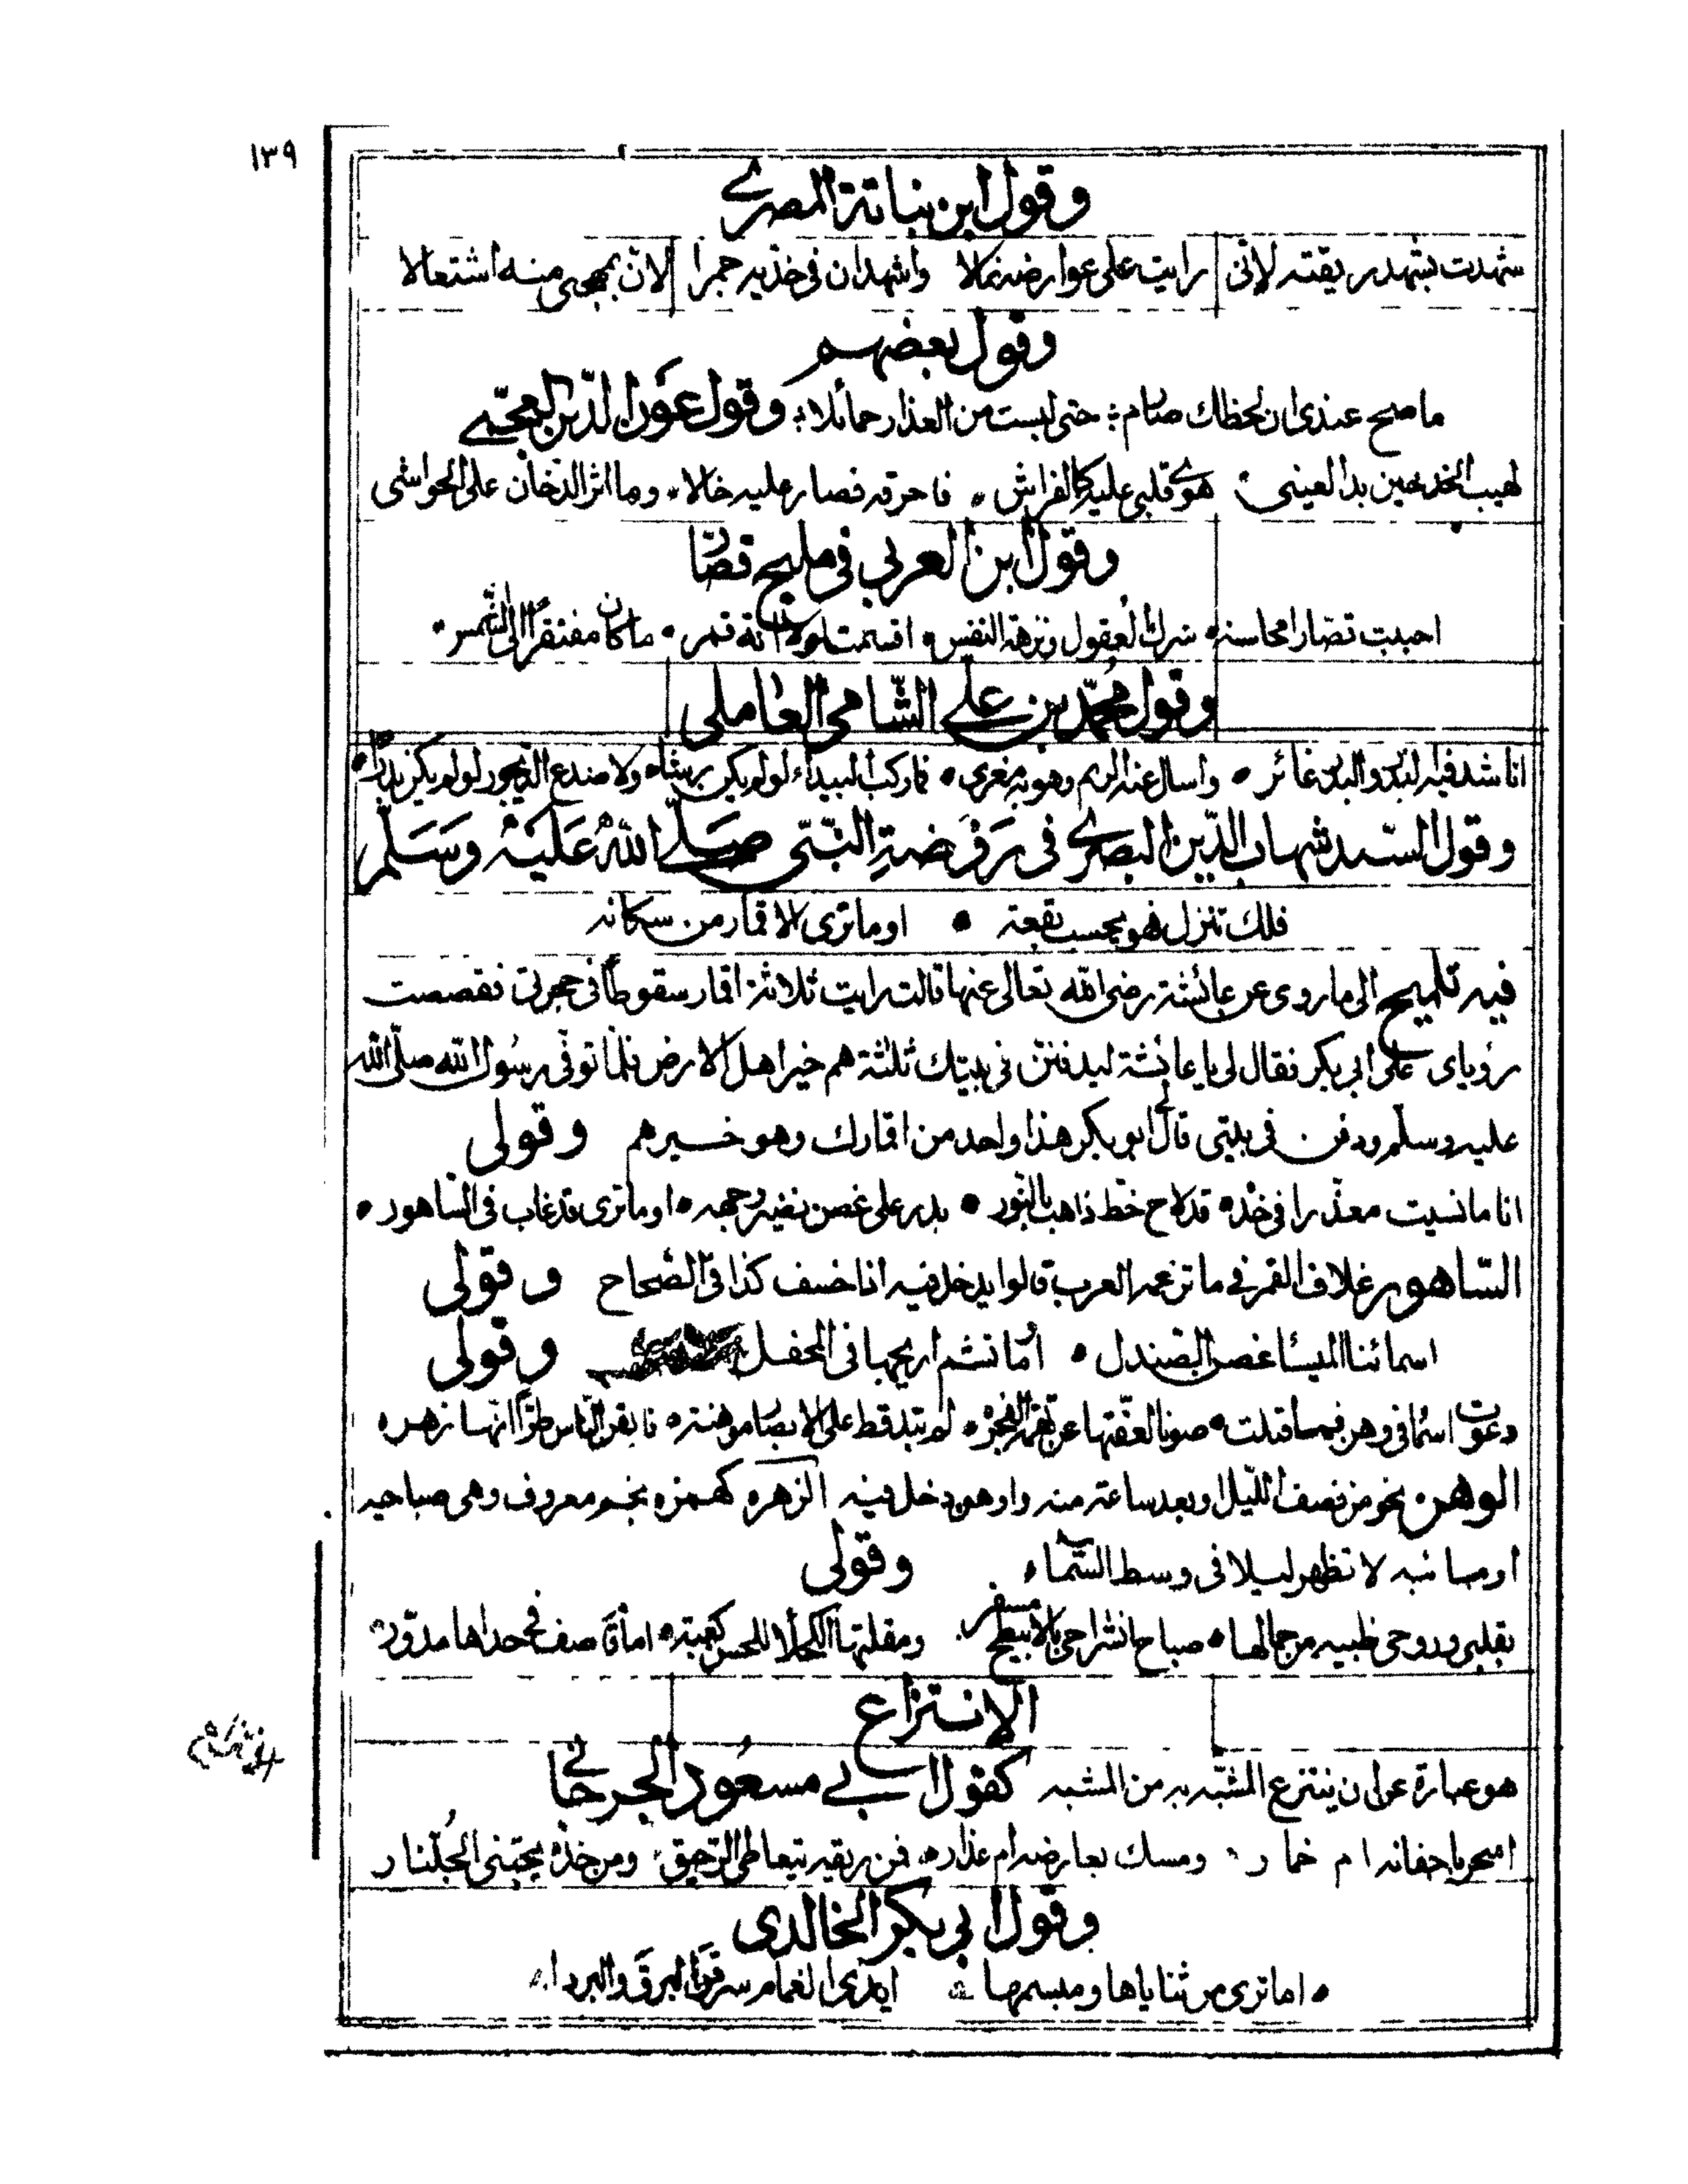 ١٣٩
وقول ابن نباتة المصري
شهدت بشهد ريقته لانى رايت على عوارضه نمالا واشهد ان فى خديه جمرا لان بمهجتى منه اشتعالا
وقول بعضهم
ما صح عندى ان لحظك صارم حتى لبست من العذار حمائلا وقول عون الدين العجمي
لهيب الخد حين بدا لعينى هوى قلبى عليه كالفراش فاحرقه فصار عليه خالا وها اثر الدخان على الحواشى
وقول ابن العربي في مليح قصار
احببت قصارا محاسنه شرك العقول ونزهة النفس اقسمت لولا انه قمر ما كان مفتقرا الى الشمس
وقول محمد بن علي الشامي العاملي
انا شد فيه البدر والبدر غائر واسال عنه الريم وهو به مغرى فما ركب البيداء لو لم يكن رشا ولا صدع الديجور لو لم يكن بدرا
وقول السيد شهاب الدين البصري في روضة النبي صلى الله عليه وسلم
فلك تنزل فهو يحسب بقعة اوما ترى الاقمار من سكانه
فيه تلميح الى ما روى عن عائشة رضى الله تعالى عنها قالت رايت ثلاثة اقمار سقوطا فى حجرتى فقصصت
رؤياى على ابى بكر فقال لى يا عائشة ليدفنن فى بيتك ثلثة هم خير اهل الارض فلما توفى رسول الله صلى الله
عليه وسلم ودفن فى بيتى قال لى ابو بكر هذا واحد من اقمارك وهو خيرهم وقولى
انا ما نسيت معذرا فى خده قد لاح خط ذاهب بالنور بدر على غصن نضير وجهه اوما ترى قد غاب فى الساهور
الساهور غلاف القمر فى ما تزعمه العرب قالوا يدخل فيه اذا خسف كذا فى الصحاح وقولى
اسمائنا الميسا غصن الصندل اما نشم اريجها فى المحفل وقولى
دعوت اسما فى وهن فما قبلت صونا لعفتها عن تهمة الفجره لم تبد قط على الابصار موهنة فايقن الناس طرا انها زهره
الوهن نحو من نصف الليل او بعد ساعة منه واوهن دخل فيه الزهره كهمزه نجم معروف وهى صباحيه
او مسائيه لا تظهر ليلا فى وسط السماء وقولى
بقلبى وروحى ظبيه من جمالها صباح انشراحى بالابيطح مسفر ومقلتها الكحلا للحسن كعبة اما قاصف فى حداها مدور
الانتزاع
هو عبارة عن ان ينتزع المشبه به من المشبه كقول ابي مسعود الجرجاني
الانتزاع
اسحر باجفانه ام خمار ومسك بعارضه ام عذار فمن ريقه يتعاطى الرحيق ومن خده يجتنى الجلنار
وقول ابي بكر الخالدي
اما ترى من ثناياها ومبسمها ايدى الغمام سرقن البرق والبردا